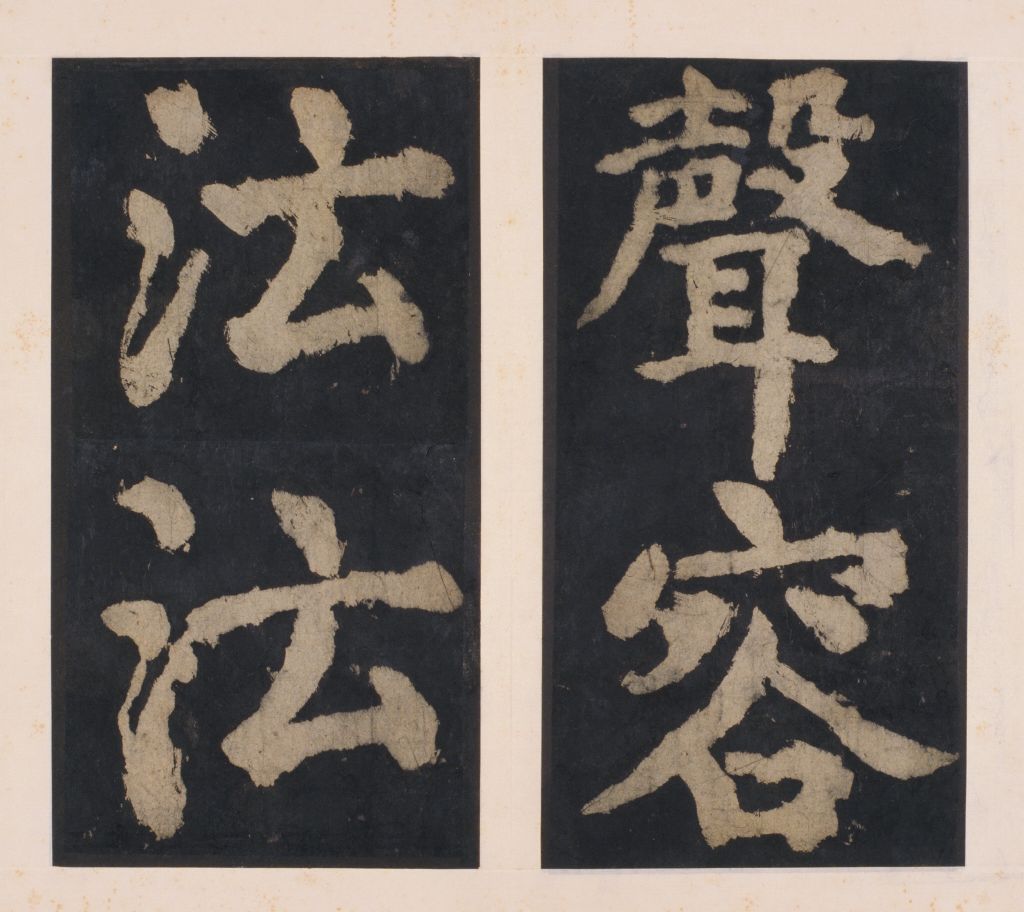 聲容
法法